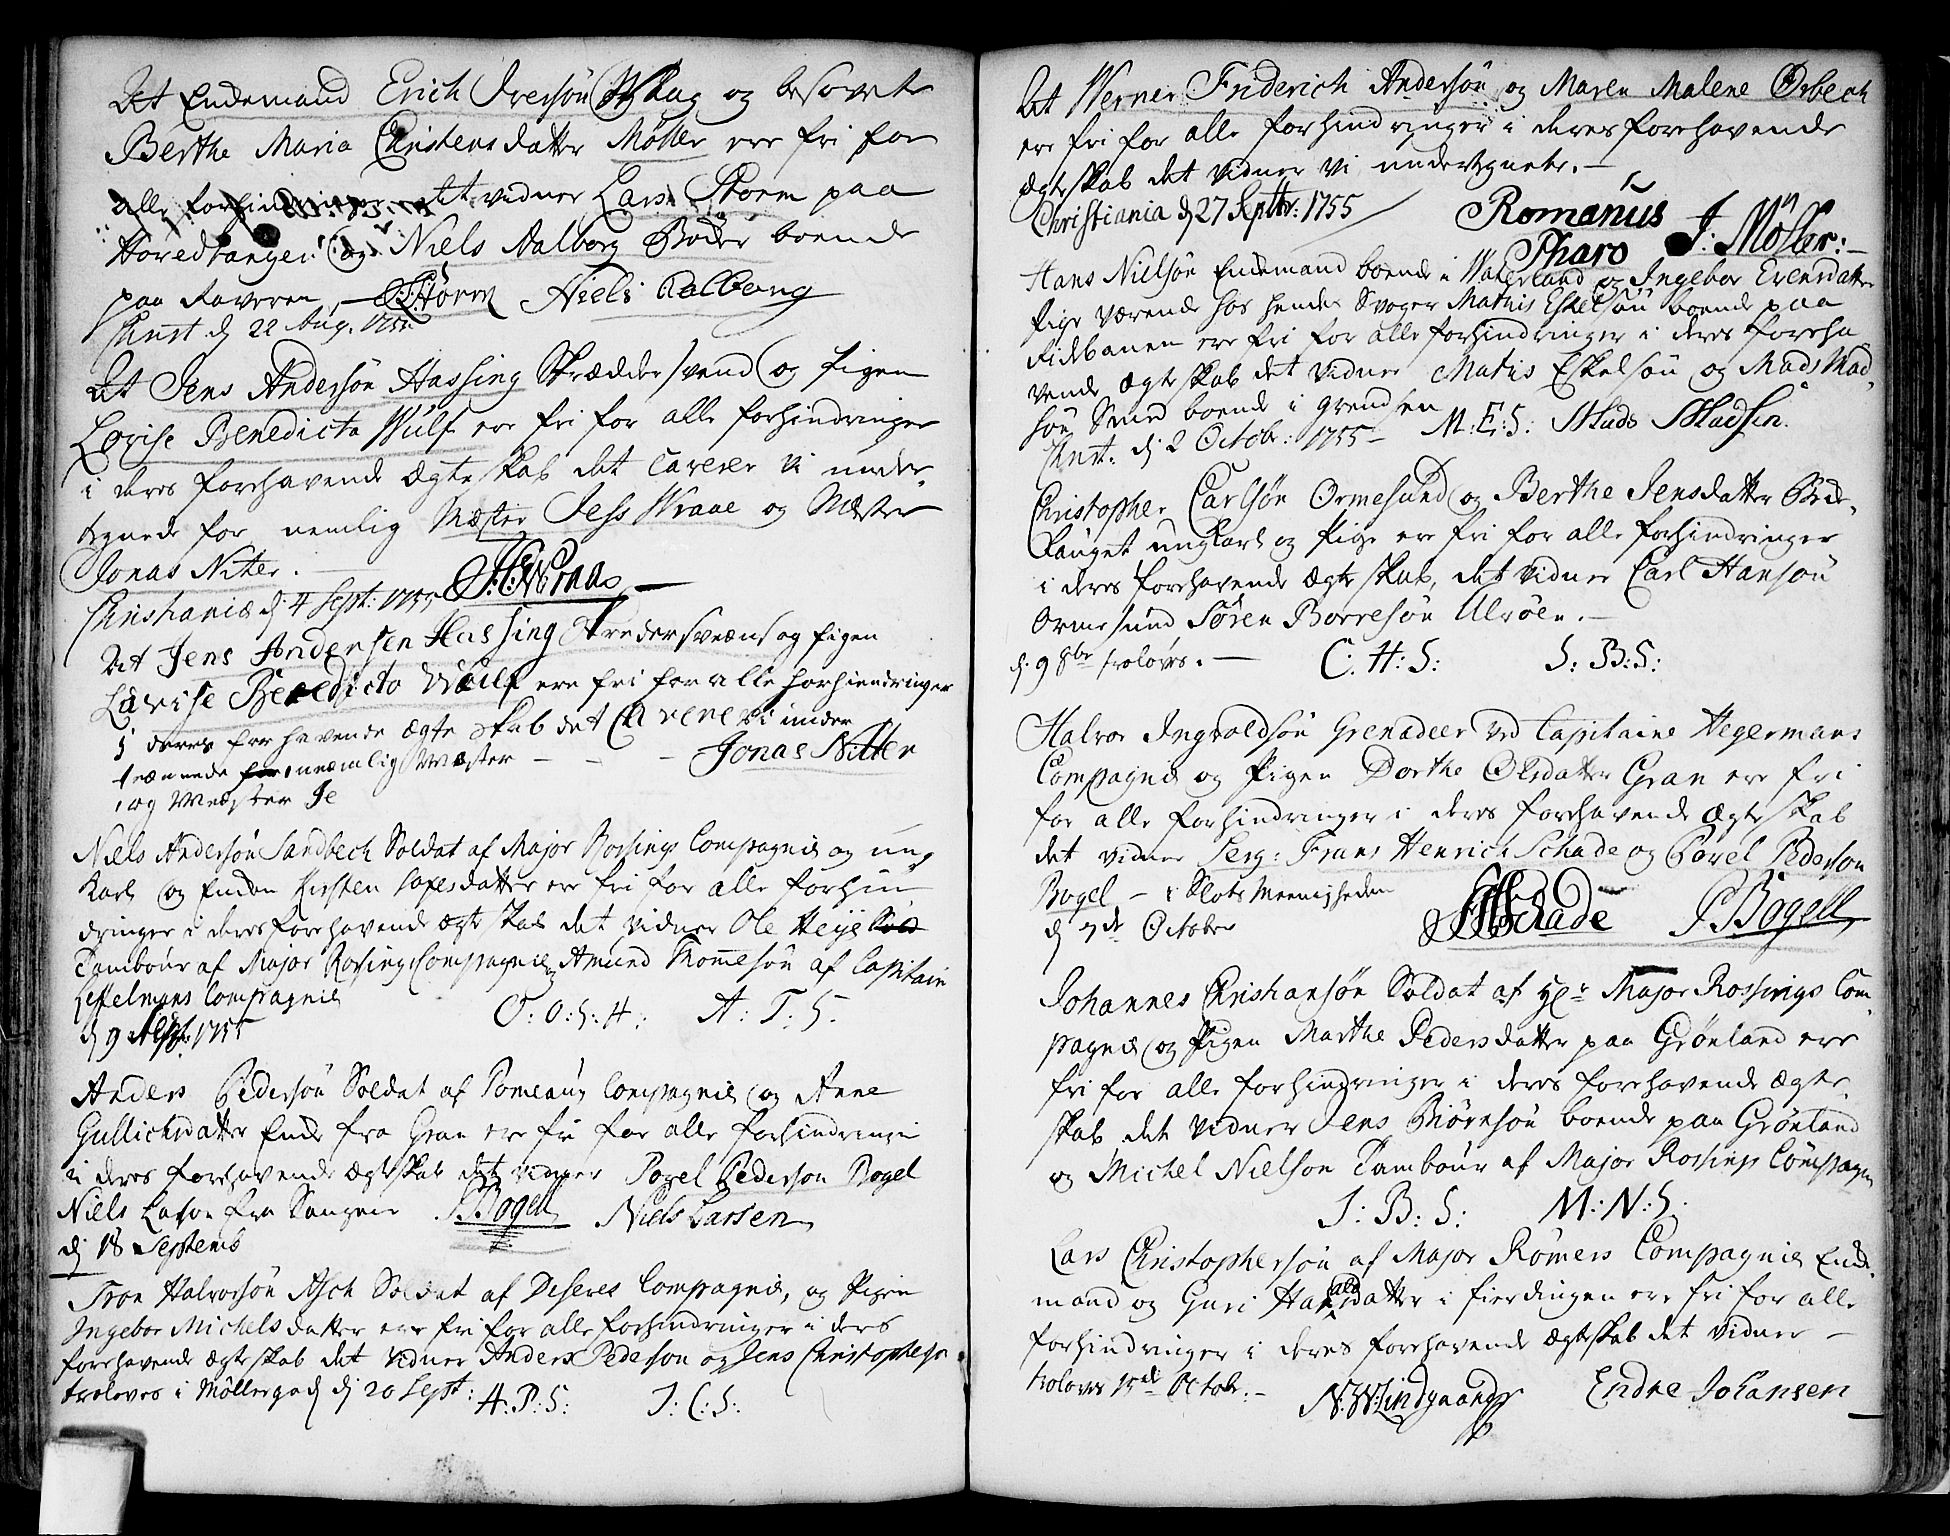 At Enckemand Erich Iversøn Skaug og besovete
Berthe Maria Christensdatter Møller ere fri for
alle forhindringer det vidner Lars Storm paa
Hovedtangen og Niels Aalborg Bøder boende
paa
LStorm Niels Aalborg
Christ. d 22 Aug. 1755
At Jens Andersøn Hassing Skrædder svend og Pigen
Lovise Benedicta Wulf ere fri for alle forhindringer
i deres forehavende Ægteskab det Caverer vi under-
tegnede for nemlig Mester Jess Wraae og Mester
Jonas Niter.
Christiania d. 4 Sept: 1755
At Jens Andersen Hassing Skreder svens og pigen
Lavise Benedicto Wulf ere fri for alle horhiendringer
i deres forhavende ægte skab det Cavere vi under
næmlig Mæster - - - Jonas Nitter
og Mæster Je
Niels Andersøn Sandbech Soldat af Major Rossings Compagnie og ung
Karl og Enken Kirsten datter ere fri for alle forhin
dringer i deres forehavende ægteskab det vidner Ole Heye
Tambour af Major Rossings Compagnie og Amund Thommesøn af Capitain
Compagnie
O: O: S: H: A: T: S.
d 9 Sept: 1755
Anders Pedersøn Soldat af Pomeaus Compagnie og Anne
Gullichsdatter Enke fra Gran ere fri for alle forhindringer
i deres forehavende ægteskab det vidner Povel Pederson Bogel
Niels Larson fra
P.Bogell Niels Larsen
d 18 Septemb
Tron Halvorsøn Asch Soldat af Deseres Compagnie, og Pigen
Ingebor Michelsdatter ere fri for alle forhindringer i deres
forehavende ægteskab det vidner Anders Pederson og Jens Christophersøn
troloves i Møllergad d 20 Sept: A: P: S: J: C: S:
At Werner Friderich Andersøn og Maren Malene Orbech
ere fri for alle forhindringer i deres forehavende
ægteskab det vidner vi undertegnete.
Christiania d 27 Septbr: 1755
Romanus J: Møller:
Pharo
Hans Nielsøn Enckemand boende i Waterland og Ingebor Evensdatter
pige værende hos hendes Svoger Mathis Eskelsøn boende paa
Ridebanen ere fri for alle forhindringer i deres foreha
vende ægteskab det vidner Mathis Eskelsøn og Mads Mad-
søn Smed boende i grendsen
M: E: S: Mads Madsen.
Christ: d 2 Octobr: 1755
Christopher Carlsøn Ormesund og Berthe Jensdatter
ungkarl og Pige ere fri for alle forhindringer
i deres forehavende ægteskab, det vidner Carl Hansøn
Ormesund Søren Borresøn Ulvøen.
d. 9 8br troloves. C. H: S: S: B: S:
Halvor Ingvoldsøn Grenadeer ved Capitaine Hegermans
Compagnie og Pigen Dorthe Olesdatter Gran ere fri
for alle forhindringer i deres forehavende ægteskab
det vidner Serg: Frans Henrich Schade og Povel Pederson
Bogel - i Slots Meenigheden
FHSchade P.Bogell
d 7de October
Johannes Christiansøn Soldat af Hr Major Rossings Com
pagnie og Pigen Marthe Pedersdatter paa Grønland ere
fri for alle forhindringer i deres forehavende ægte
skab det vidner Jens Biørnsøn boende paa Grønland
og Michel Nielson Tambour af Major Rossings Compagnie
J: B: S: M: N: S.
Lars Christophersøn af Major Rømers Compagnie Enke
mand og Guri datter i fierdingen ere fri for alle
forhindringer i deres forehavende ægteskab det vidner
troloves 15de Octobr. N.W:Lindgaard Endre Johansen